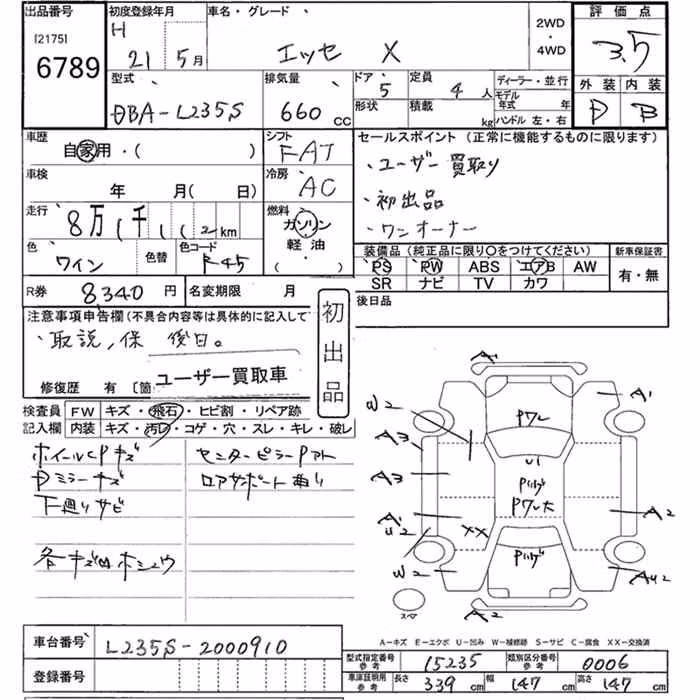 出品番号 初度登録年月 車名・グレード 2WD・4WD 評価点
[2175]
6789
H 21 5月 エッセ X 3.5
外装 内装
D B
型式 排気量 ドア 定員 ディーラー・並行
DBA-L235S 660 CC 5 4人
形状 積載 kg
モデル年式 年
ハンドル 左・右
車歴 自家用・( ) シフト FAT
車検 年 月( 日) 冷房 AC
走行 8万1千112km 燃料 ガソリン 軽油・( )
色 ワイン 色替 色コード R-45
セールスポイント (正常に機能するものに限ります)
・ユーザー買取り
・初出品
・ワンオーナー
装備品 (純正品に限り○をつけてください) 新車保証書
PS PW ABS エアB AW 有・無
SR ナビ TV カワ
R券 8340円 名変期限 月
後日品
注意事項申告欄(不具合内容等は具体的に記入して
・取説,保 後日。
初出品
修復歴 有 〔箇 ユーザー買取車
検査員 FW キズ・飛石・ヒビ割・リペア跡
記入欄 内装 キズ・汚レ・コゲ・穴・スレ・キレ・破レ
ホイールCPキズ センターピラーPアト
Dミラーキズ ロアサポート曲り
下廻リサビ
各キズ凹ホシュウ
A1
U2 Pワレ A1
A3 U1
A3 Pハゲ
Pワレ大
A1 A2
U2 XX Pハゲ
W2 AU2
スペア A2
A-キズ E-エクボ U-凹み W-補修跡 S-サビ C-腐食 XX-交換済
車台番号 L235S-2000910
型式指定番号 参考 15235 類別区分番号 参考 0006
登録番号
車庫証明用 参考 長さ 339cm 幅 147cm 高さ 147cm